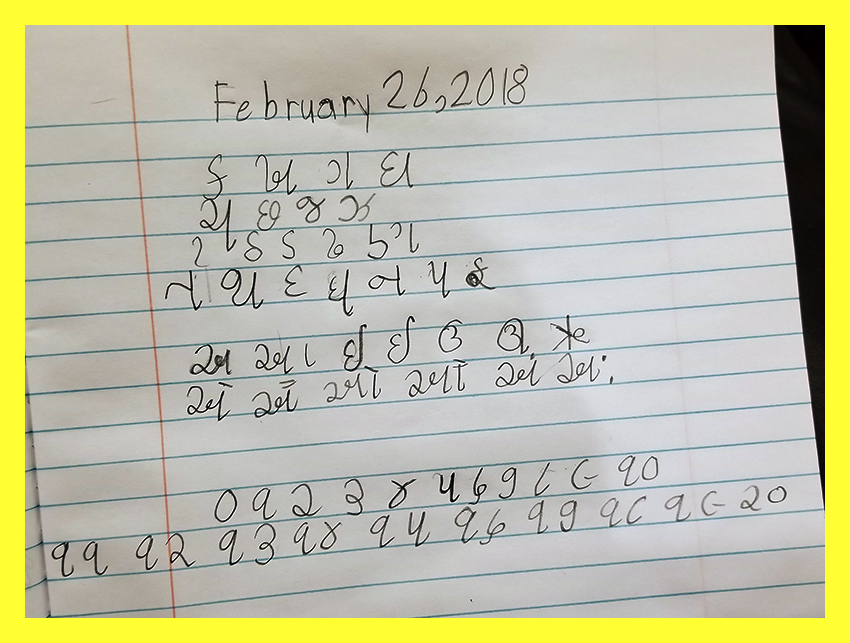 February 26, 2018
ક ખ ગ ઘ
ચ છ જ ઝ
ટ ઠ ડ ઢ ણ
ત થ દ ધ ન પ ફ
અ આ ઇ ઈ ઉ ઊ
એ ઐ ઓ ઔ અં અઃ
૦ ૧ ૨ ૩ ૪ ૫ ૬ ૭ ૮ ૯ ૧૦
૧૧ ૧૨ ૧૩ ૧૪ ૧૫ ૧૬ ૧૭ ૧૮ ૧૯ ૨૦